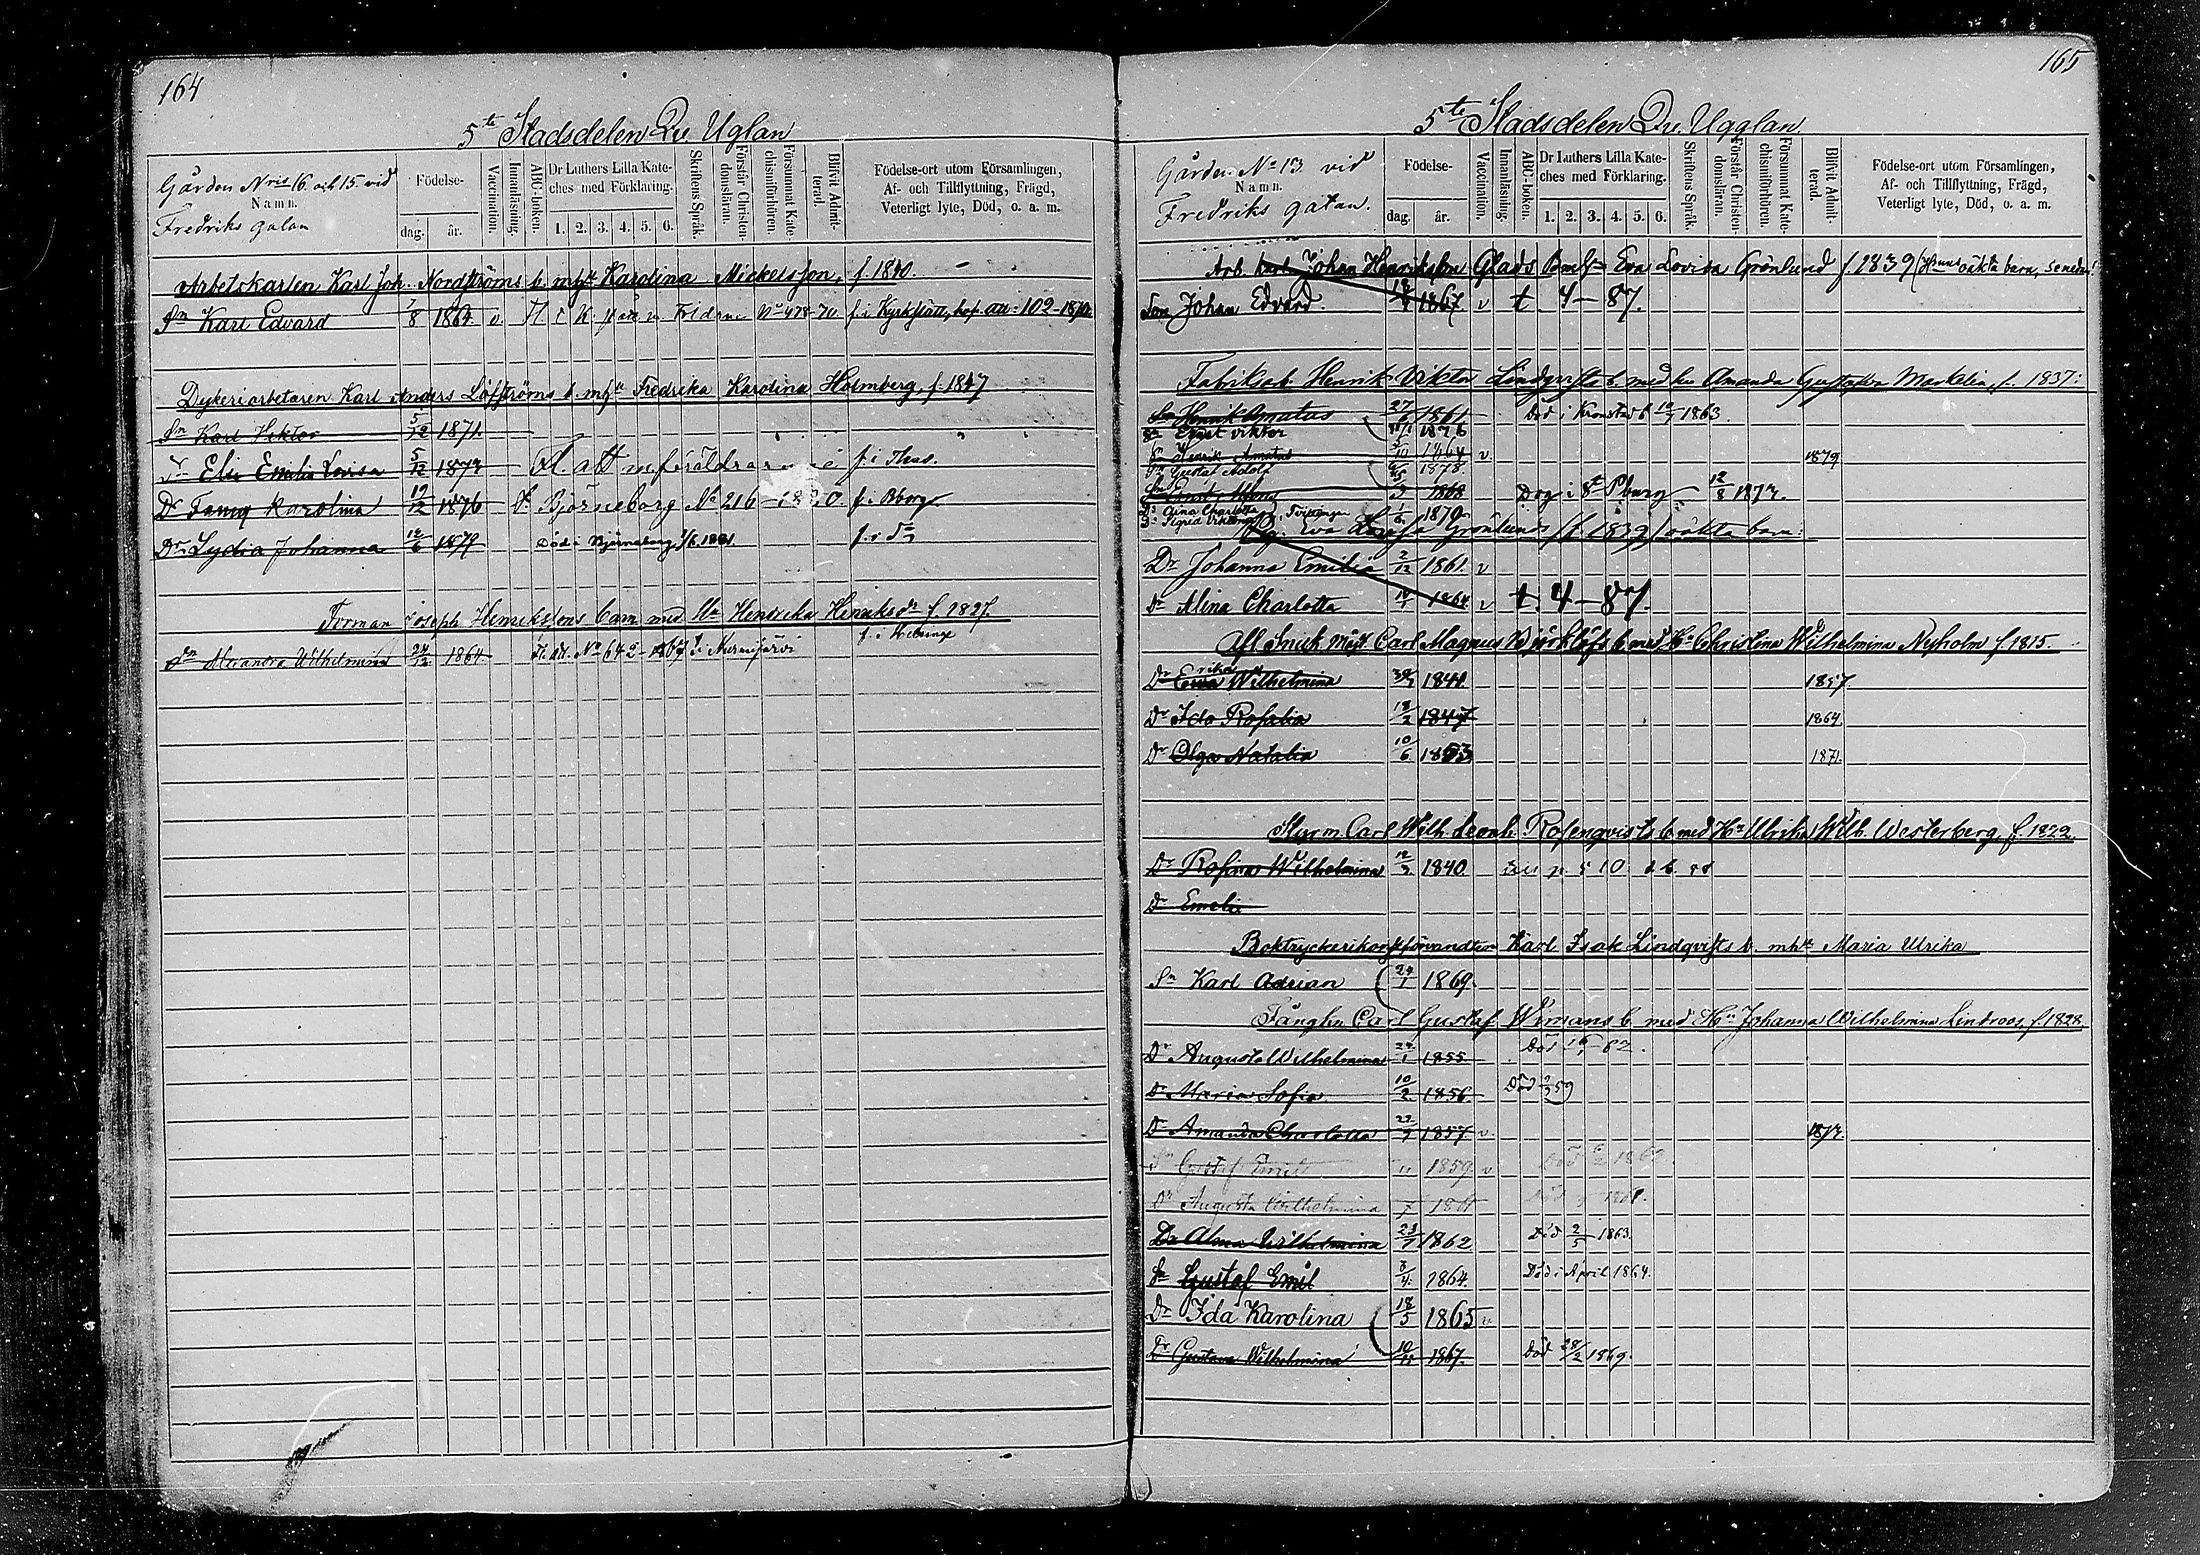 164
5te Stadsdelen Qv. Uglan
Gården Nris 16 och 15 vid
Namn.
Fredriks gatan
Födelse-
dag. år.
Vaccination.
Innanläsning.
ABC-boken.
Dr Luthers Lilla Kate-
ches med Förklaring.
1. 2. 3. 4. 5. 6.
Skriftens Språk.
Förstår Christen-
domsläran.
Försummat Kate-
chismiförhören.
Blifvit Admit-
terad.
Födelse-ort utom Församlingen,
Af- och Tillflyttning, Frägd,
Veterligt lyte, Död, o. a. m.
Arbetskarlen Karl Joh. Nordströms b. mhu Karolina Mickelsson, f. 1840.
Sn Karl Edvard 1/8 1864. v. No 478-70. f. i Kyrkslätt, att 102-1870
Dykeriarbetaren Karl Anders Löfströms b. mhu Fredrika Karolina Holmberg, f. 1847
Sn Karl Viktor 5/12 1871.
Dr Elin Emilia Lovisa 5/12 1873 Fl. att m. föräldrarne f. i Thus.
Dr Fanny Karolina 19/12 1876 Björneborg No 216 - 1880 f. i Bborg.
Dr Lydia Johanna 12/6 1879 Död i Björneborg 1/6 1881. f. i do
Forman Joseph Henrikssons barn med Hu Hendrika Henriksdr f. 1827.
Dr Alexandra Wilhelmina 24/12 1864. Fl. att. No 642-1867 i Nurmijärvi
165
5te Stadsdelen Qv. Ugglan
Gården No 13 vid
Namn.
Fredriks gatan.
Födelse-
dag. år.
Vaccination.
Innanläsning.
ABC-boken.
Dr Luthers Lilla Kate-
ches med Förklaring.
1. 2. 3. 4. 5. 6.
Skriftens Språk.
Förstår Christen-
domsläran.
Försummat Kate-
chismiförhören.
Blifvit Admit-
terad.
Födelse-ort utom Församlingen,
Af- och Tillflyttning, Frägd,
Veterligt lyte, Död, o. a. m.
Arb. Karl Johan Henriksson Glads b. mhu Eva Lovisa Grönlund f. 1839 (Hennes oäkta barn, se nedan)
Son Johan Edvard. 1867. v t. 4-87.
Fabriksarb. Henrik Viktor Lindqvists b. med hu Amanda Gustafva Markelin, f. 1837:
Sn Henrik Amatus 27/ 1861 Död i Kronstad 1863.
Sn Ernst Viktor 1876
Sn Henrik Amatus 5/10 1864 v 1879
Sn Gustaf Adolf 1878
Sn Ernst 1868 Dog i St Pburg 12/8 1873.
Dr Aina Charlotta
Dr Sigrid Tvillingar 1/6 1870
Pig. Eva Lovisa Grönlunds (f. 1839) oäkta barn:
Dr Johanna Emilia 2/12 1861. v
Dr Alina Charlotta 1864 v t. 4-87.
Afl. Snick. mäst. Carl Magnus Björklöfs b. med Hu Christina Wilhelmina Nyholm f. 1815.
Erika
Dr Ewa Wilhelmina 1841. 1857.
Dr Ida Rosalia 18/2 1847 1864.
Dr Olga Natalia 10/6 1853 1871.
Styrm. Carl Wilh. Leonh. Rosenqvists b. med Hu Ulrika Wilh. Westerberg, f. 1822.
Dr Rosina Wilhelmina 12/3 1840 se p. 510
Dr Emelie
Boktryckerikonstförvandten Karl Isak Lindqvists b. mhu Maria Ulrika
Sn Karl Adrian 24/1 1869.
Fångkn. Carl Gustaf Wimans b. med Hu Johanna Wilhelmina Lindroos, f. 1828
Dr Augusta Wilhelmina 24/1 1855 Död -62.
Dr Maria Sofia 10/2 1856 Död 59
Dr Amanda Charlotta 27/7 1857 v. 1873.
Sn Gustaf Emil 1859 v Död 1862.
Dr Augusta Wilhelmina 1861 Död
Dr Alma Wilhelmina 23/7 1862 Död 2/5 1863.
Sn Gustaf Emil 3/4 1864. Död i April 1864.
Dr Ida Karolina 18/5 1865 v
Dr Gustava Wilhelmina 10/11 1867. Död 28/2 1869.